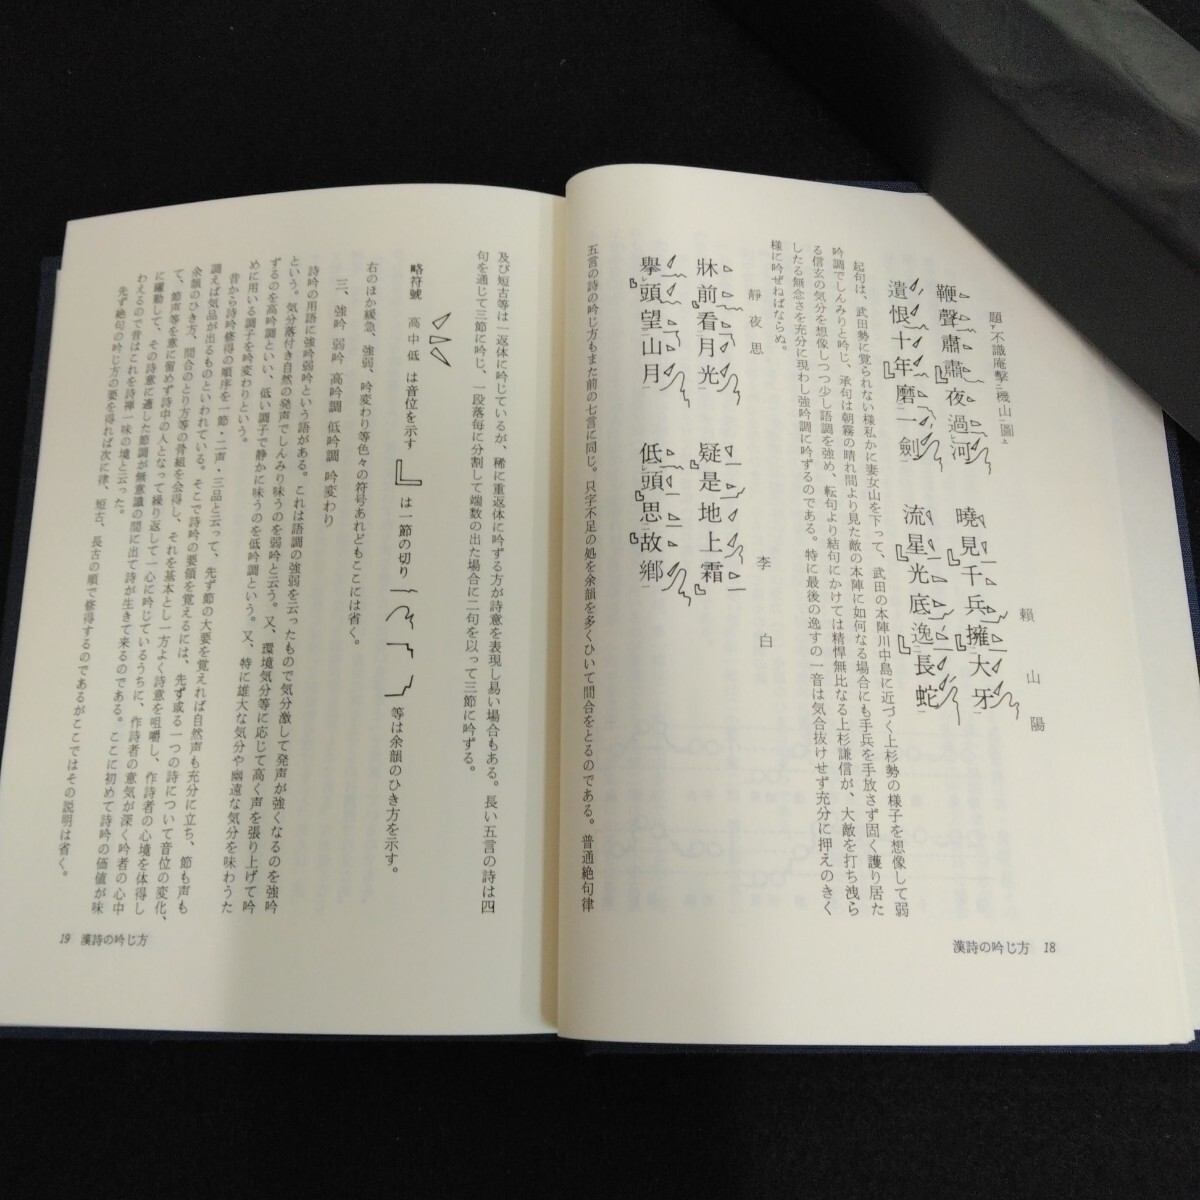 題不識庵擊機山圖 賴山陽
鞭聲肅肅夜過河 曉見千兵擁大牙
遺恨十年磨一劍 流星光底逸長蛇
起句は、武田勢に覚られない様私かに妻女山を下って、武田の本陣川中島に近づく上杉勢の様子を想像して弱
吟調でしんみりと吟じ、承句は朝霧の晴れ間より見た敵の本陣に如何なる場合にも手兵を手放さず固く護り居た
る信玄の気分を想像しつつ少し語調を強め、転句より結句にかけては精悍無比なる上杉謙信が、大敵を打ち洩ら
したる無念さを充分に現わし強吟調に吟ずるのである。特に最後の逸すの一音は気合抜けせず充分に押えのきく
様に吟ぜねばならぬ。
靜夜思 李白
牀前看月光 疑是地上霜
擧頭望山月 低頭思故鄉
五言の詩の吟じ方もまた前の七言に同じ。只字不足の処を余韻を多くひいて間合をとるのである。普通絶句律
漢詩の吟じ方 18
及び短古等は一返体に吟じているが、稀に重返体に吟ずる方が詩意を表現し易い場合もある。長い五言の詩は四
句を通じて三節に吟じ、一段落毎に分割して端数の出た場合に二句を以って三節に吟ずる。
略符號 高中低は音位を示す 』は一節の切り 等は余韻のひき方を示す。
右のほか緩急、強弱、吟変わり等色々の符号あれどもここには省く。
三、強吟 弱吟 高吟調 低吟調 吟変わり
詩吟の用語に強吟弱吟という語がある。これは語調の強弱を云ったもので気分激して発声が強くなるのを強吟
という。気分落付き自然の発声でしんみり味うのを弱吟と云う。又、環境気分等に応じて高く声を張り上げて吟
ずるのを高吟調といい、低い調子で静かに味うのを低吟調という。又、特に雄大な気分や幽遠な気分を味わうた
めに用いる調子を吟変わりという。
昔から詩吟修得の順序を一節・二声・三品と云って、先ず節の大要を覚えれば自然声も充分に立ち、節も声も
調えば気品が出るものといわれている。そこで詩吟の要領を覚えるには、先ず或る一つの詩について音位の変化、
余韻のひき方、間合のとり方等の骨組を会得し、それを基本とし一方よく詩意を咀嚼し、作詩者の心境を体得し
て、節声等を意に留めず詩中の人となって繰り返して一心に吟じているうちに、作詩者の意気が深く吟者の心中
に躍動して、その詩意に適した節調が無意識の間に出て詩が生きて来るのである。ここに初めて詩吟の価値が味
わえるので昔はこれを詩禅一味の境と云った。
先ず絶句の吟じ方の要を得れば次に律、短古、長古の順で修得するのであるがここではその説明は省く。
19 漢詩の吟じ方